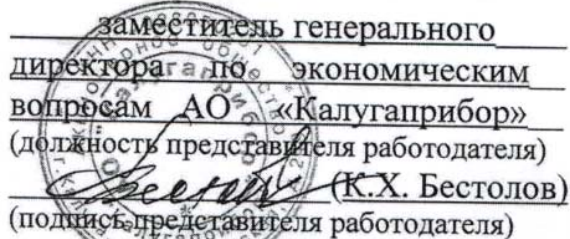 заместитель генерального
директора по экономическим
вопросам АО «Калугаприбор»
(должность представителя работодателя)
(К.Х. Бестолов)
(подпись представителя работодателя)